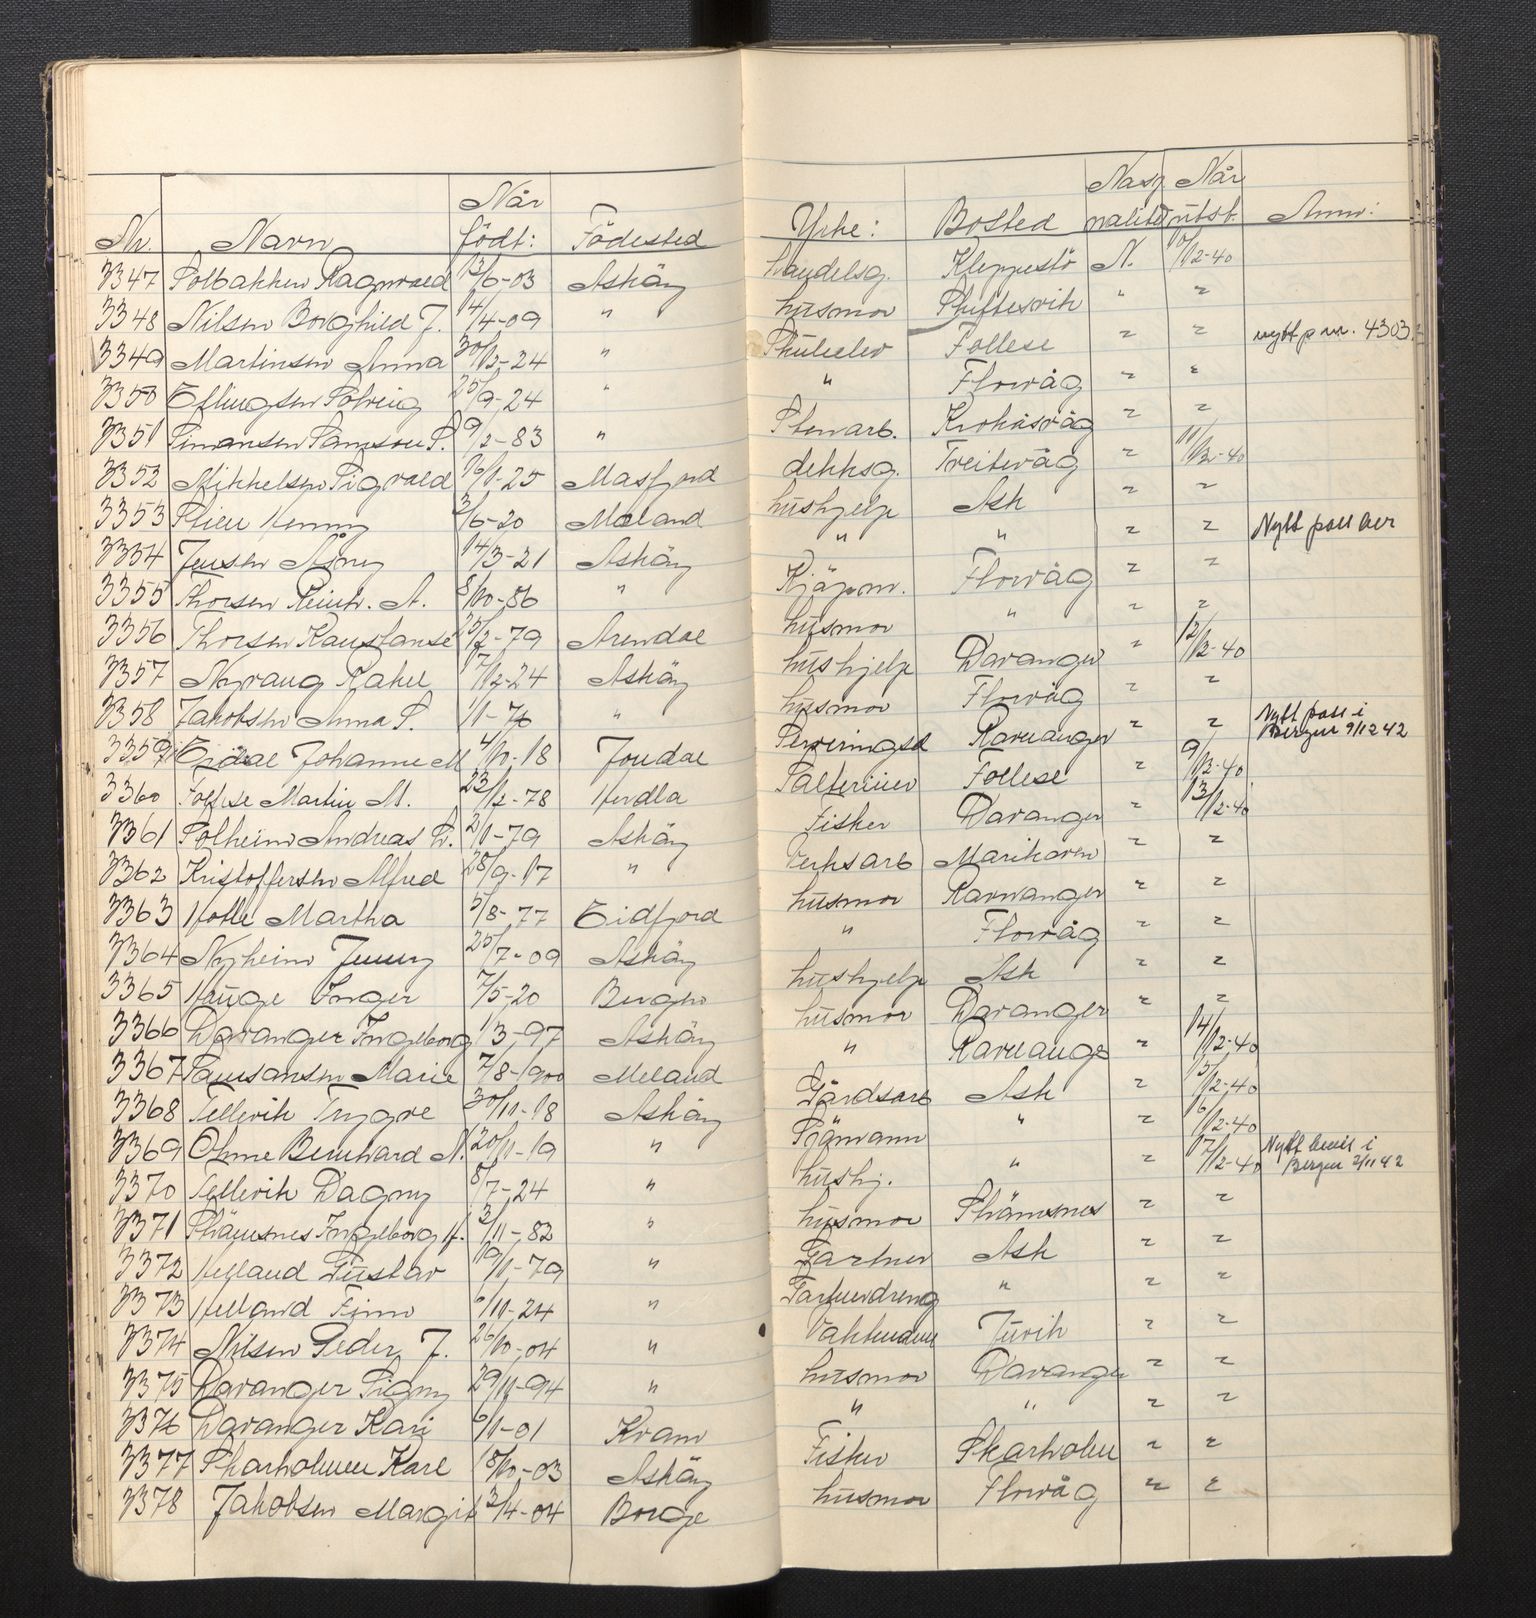 Nr. Navn Når født: Födested Yrke: Bosted Nasjonalitet Når utst. Anm:
3347 Solbakken Ragnvald 13/6-03 Asköy handelsg. Kleppestö N. 10/12-40
3348 Nilsen Borghild J. 14/4-09 " husmor Skiftesvik " "
3349 Martinsen Anna 30/12-24 " Skuleelev Follese " " nytt p nr. 4303
3350 Ellingsen Solveig 25/9-24 " " Florvåg " "
3351 Simonsen Samson S. 9/2-83 " Stenarb. Krokåsvåg " "
3352 Mikkelsen Sigvald 16/1-25 Masfjord dekksg. Treitevåg " 11/12-40
3353 Henny 2/6-20 Mæland hushjelp Ask " "
3354 Jensen Åsny 14/3-21 Asköy " " " " Nytt pass ber
3355 Thorsen Reinh. A. 8/10-86 " Kjöpm. Florvåg " "
3356 Thorsen Konstanse 25/2-79 Arendal husmor " " "
3357 Rakel 17/12-24 Asköy hushjelp Davanger " 12/12-40
3358 Jakobsen Anna S. 1/1-76 " husmor Florvåg " "
3359 Eidal Johanne M 4/10-18 Jondal Serveringsd Ravnanger " " Nytt pass i Bergen 9/12 42
3360 Follese Martin M. 23/12-78 Herdla Salterieier Follese " 9/12-40
3361 Solheim Andreas 2/1-79 Asköy Fisker Davanger " 13/12-40
3362 Kristoffersen Alfred 28/9-17 " Verksarb Marikoven " "
3363 Holte Martha 5/8-77 Eidfjord husmor Ravnanger " "
3364 Nyheim Jenny 25/7-09 Asköy " Florvåg " "
3365 Hauge Inger 7/5-20 Bergen hushjelp Ask " "
3366 Davanger Ingeborg 1/3-97 Asköy husmor Davanger " "
3367 Samsonsen Marie 7/8-1900 Meland " Ravnanger " 14/12-40
3368 Tellevik Trygve 30/11-18 Asköy Gårdsarb Ask " 15/12-40
3369 Ohme Bernhard N. 20/11-19 " Sjömann " " 16/12-40
3370 Tellevik Dagny 8/7-24 " hushj. " " 17/12-40 Nytt bevis i Bergen 2/11 42
3371 Skåmsnes Ingeborg H. 3/11-82 " husmor Skåmsnes " "
3372 Helland Gustav 19/1-79 " Gartner Ask " "
3373 Helland Finn 6/11-24 " " " "
3374 Nilsen Peder J. 26/10-04 " Juvik " "
3375 Davanger Signy 29/11-94 " husmor Davanger " "
3376 Davanger Kari 6/1-01 Kvam " " " "
3377 Skarholmen Karl 18/10-03 Asköy Fisker Skarholm " "
3378 Jakobsen Margit 13/4-04 Borge husmor Florvåg " "